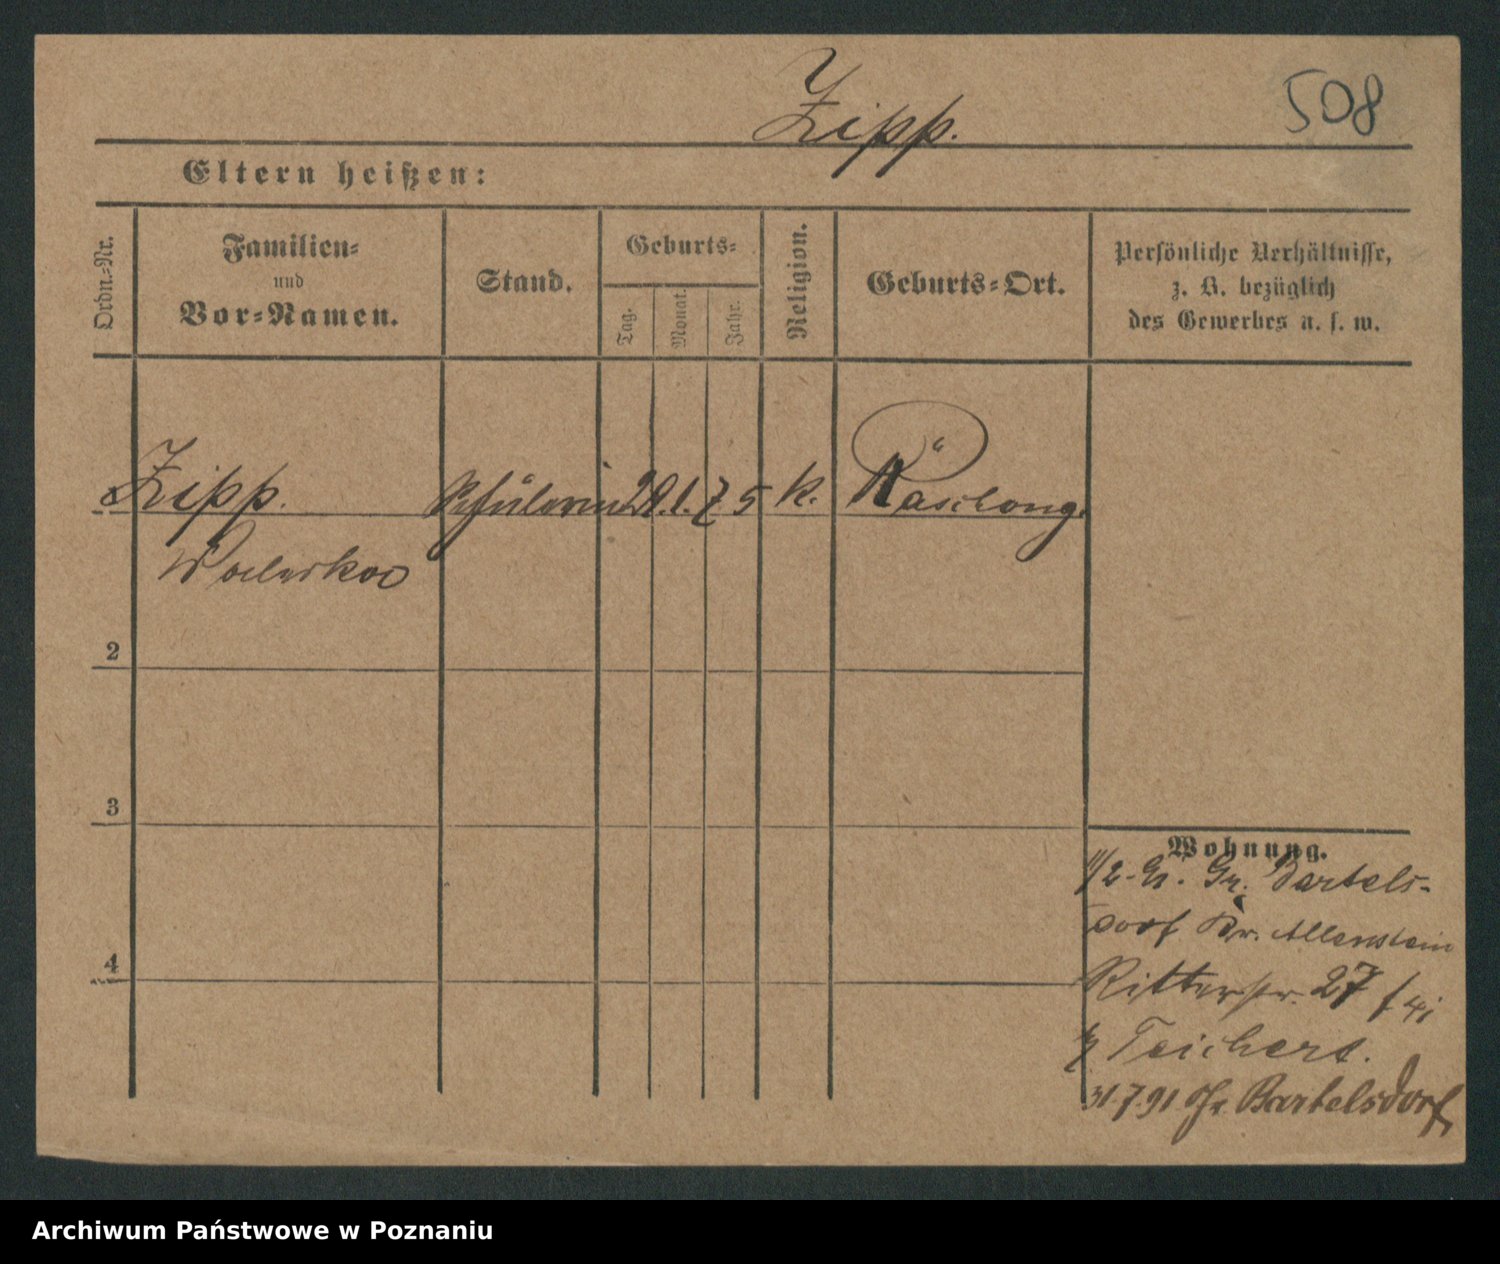 Zipp.
508
Eltern heißen:
Ordn.-Nr.
Familien-
und
Vor-Namen.
Stand.
Geburts-
Tag.
Monat.
Jahr.
Religion.
Geburts-Ort.
Persönliche Verhältnisse,
z. B. bezüglich
des Gewerbes u. s. w.
Zipp. Schülerin 29. 1. 75 k. Raschung.
2
3
4
Wohnung.
Gr. Bartels-
dorf Kr. Allenstein
Ritterstr. 27
Teichert.
31.7.91 Gr. Bartelsdorf
Archiwum Państwowe w Poznaniu